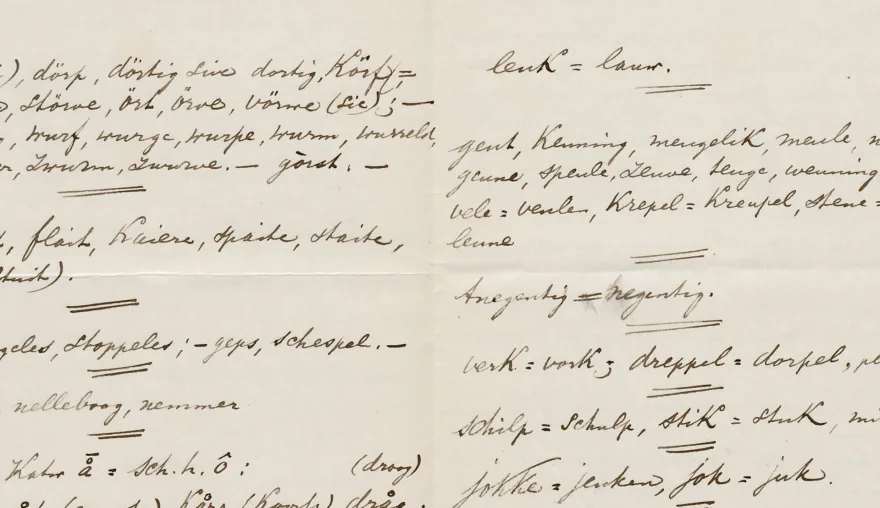 ), dörp, dörtig sive dortig, Körf) =
, Störwe, Ört, Örve, Vörwe (sic); —
, wurf, wurge, wurpe, wurm, wurreld,
, Zwurm, Zwurwe. — görst. —
, flait, Kaiere, spaite, staite,
geles, stoppeles; — geps, schespel. —
nelleboog, nemmer
Kator å = sch. h. ô : (droog)
leuk = lauw.
geut, Keuning, meugelik, meule,
geune, speule, Zeuve, teuge, weuning
vele = veulen, Krepel = Kreupel, stene =
leune
tnegentig = negentig.
verk = vork; dreppel = dorpel,
schilp = schulp, stik = stuk,
jokke = jeuken, jok = juk.